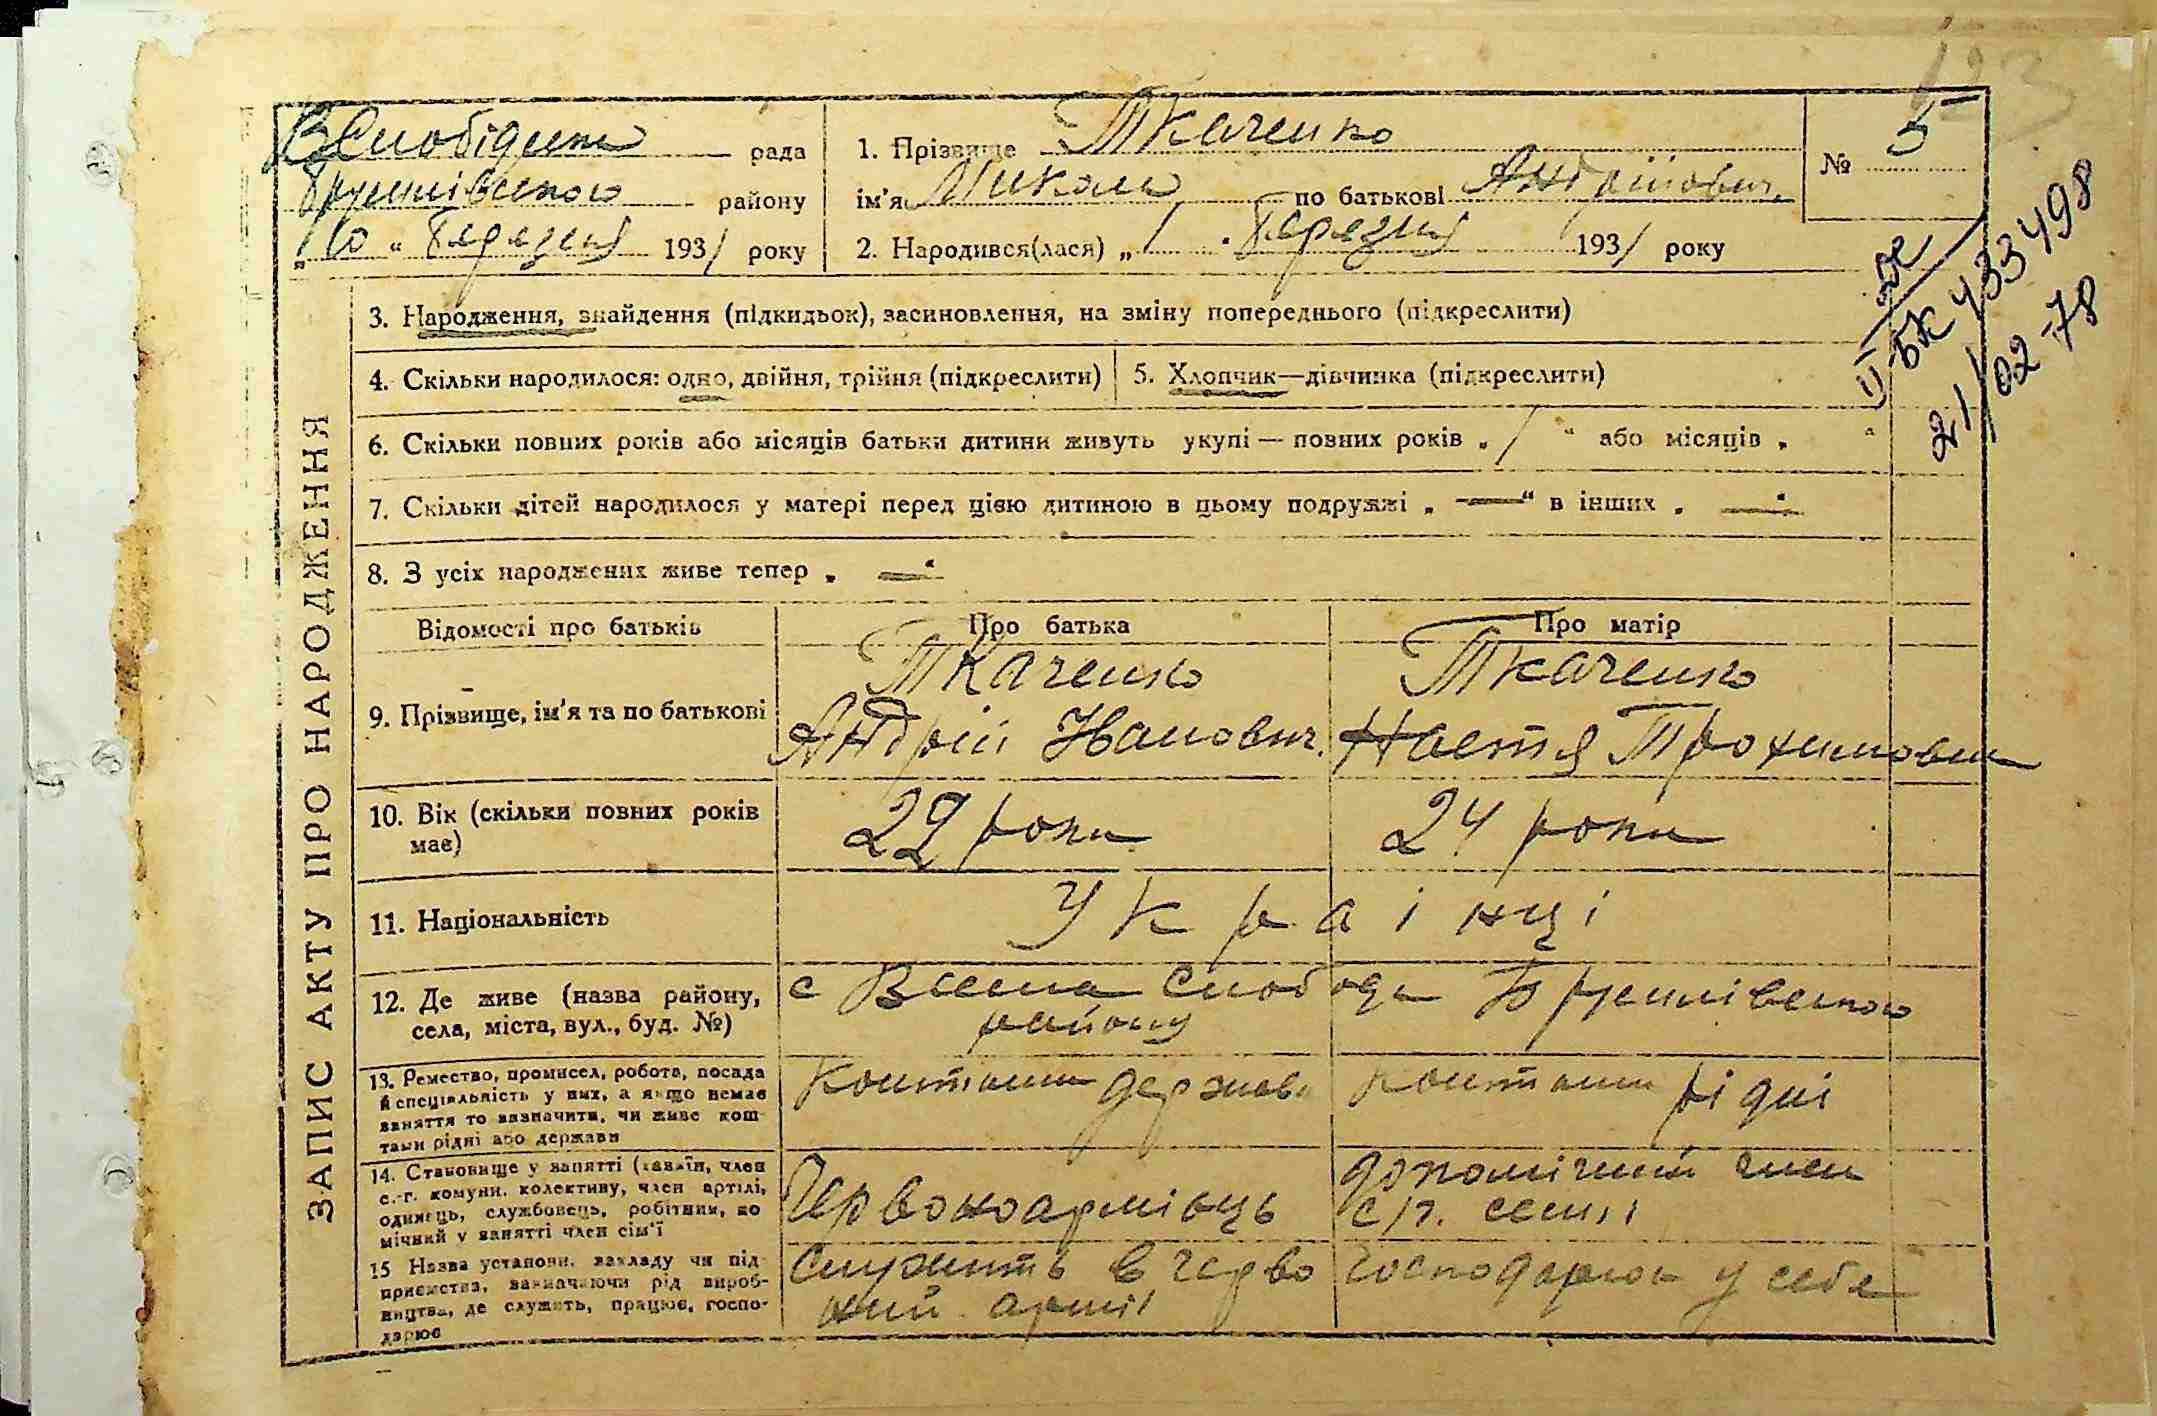 123
В Слобідська рада
Брусилівського району
„10“ Березня 1931 року
1. Прізвище Ткаченко
ім'я Микола по батькові Андрійович.
2. Народився(лася) „1“ Березня 1931 року
№ 5
II БК 433498
21/02-78
ЗАПИС АКТУ ПРО НАРОДЖЕННЯ
3. Народження, знайдення (підкидьок), засиновлення, на зміну попереднього (підкреслити)
4. Скільки народилося: одно, двійня, трійня (підкреслити)
5. Хлопчик—дівчинка (підкреслити)
6. Скільки повних років або місяців батьки дитини живуть укупі — повних років „1“ або місяців „ “
7. Скільки дітей народилося у матері перед цією дитиною в цьому подружжі „—“ в інших „—“
8. З усіх народжених живе тепер „—“
Відомості про батьків
Про батька
Про матір
9. Прізвище, ім'я та по батькові
Ткаченко
Андрій Іванович.
Ткаченко
Настя Трохимовна
10. Вік (скільки повних років
має)
22 роки
24 роки
11. Національність
Українці
12. Де живе (назва району,
села, міста, вул., буд. №)
с Слобода Брусилівського
району
13. Ремество, промисел, робота, посада
й спеціяльність у них, а якщо немає
заняття то зазначити, чи живе кош-
тами рідні або держави
Коштами держав.
Коштами рідні
14. Становище у занятті (хазяїн, член
с.-г. комуни, колективу, член артілі,
одинець, службовець, робітник, по
мічний у занятті член сім'ї
Червоноармієць
допомічний член
с/г. семії
15 Назва установи, закладу чи під-
приємства, зазначаючи рід вироб-
ництва, де служить, працює, госпо-
дарює
Служить в черво
ний армії
Господарює у себе